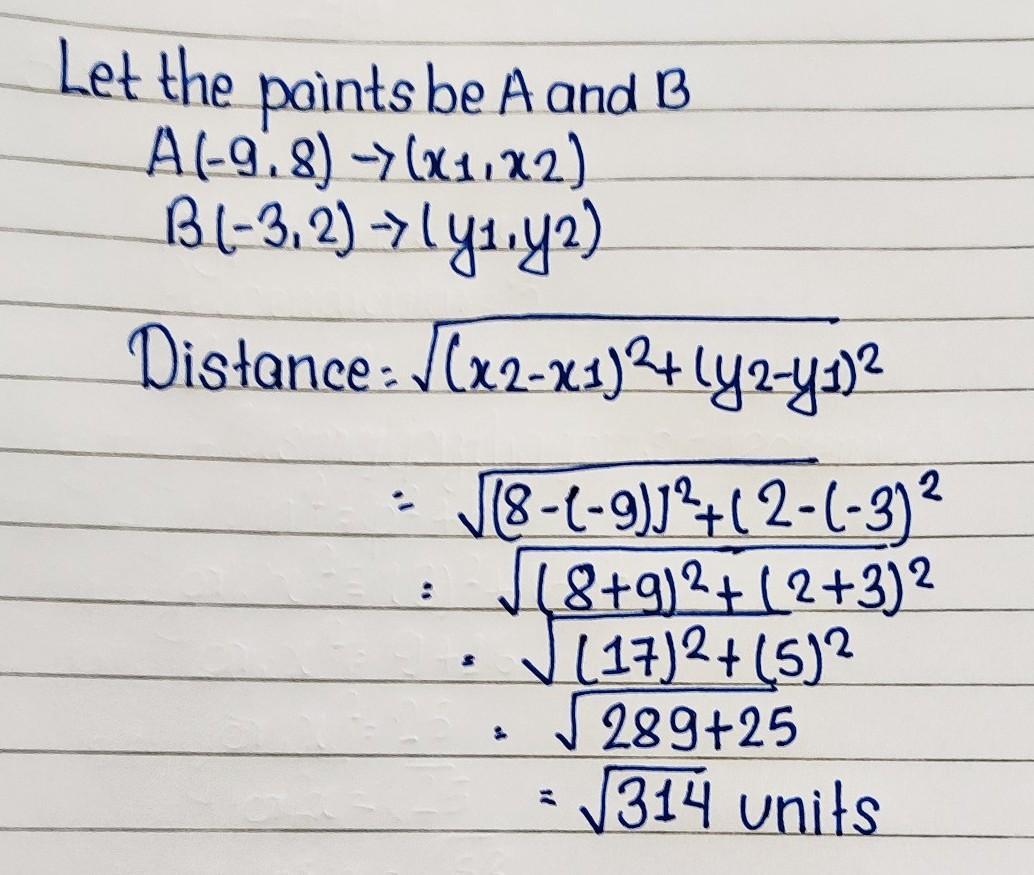 Let the points be A and B
A(-9,8) → (x1,x2)
B(-3,2) → (y1,y2)
Distance = √(x2-x1)²+(y2-y1)²
= √(8-(-9)]²+(2-(-3)²
= √(8+9)²+(2+3)²
= √(17)²+(5)²
= √289+25
= √314 units